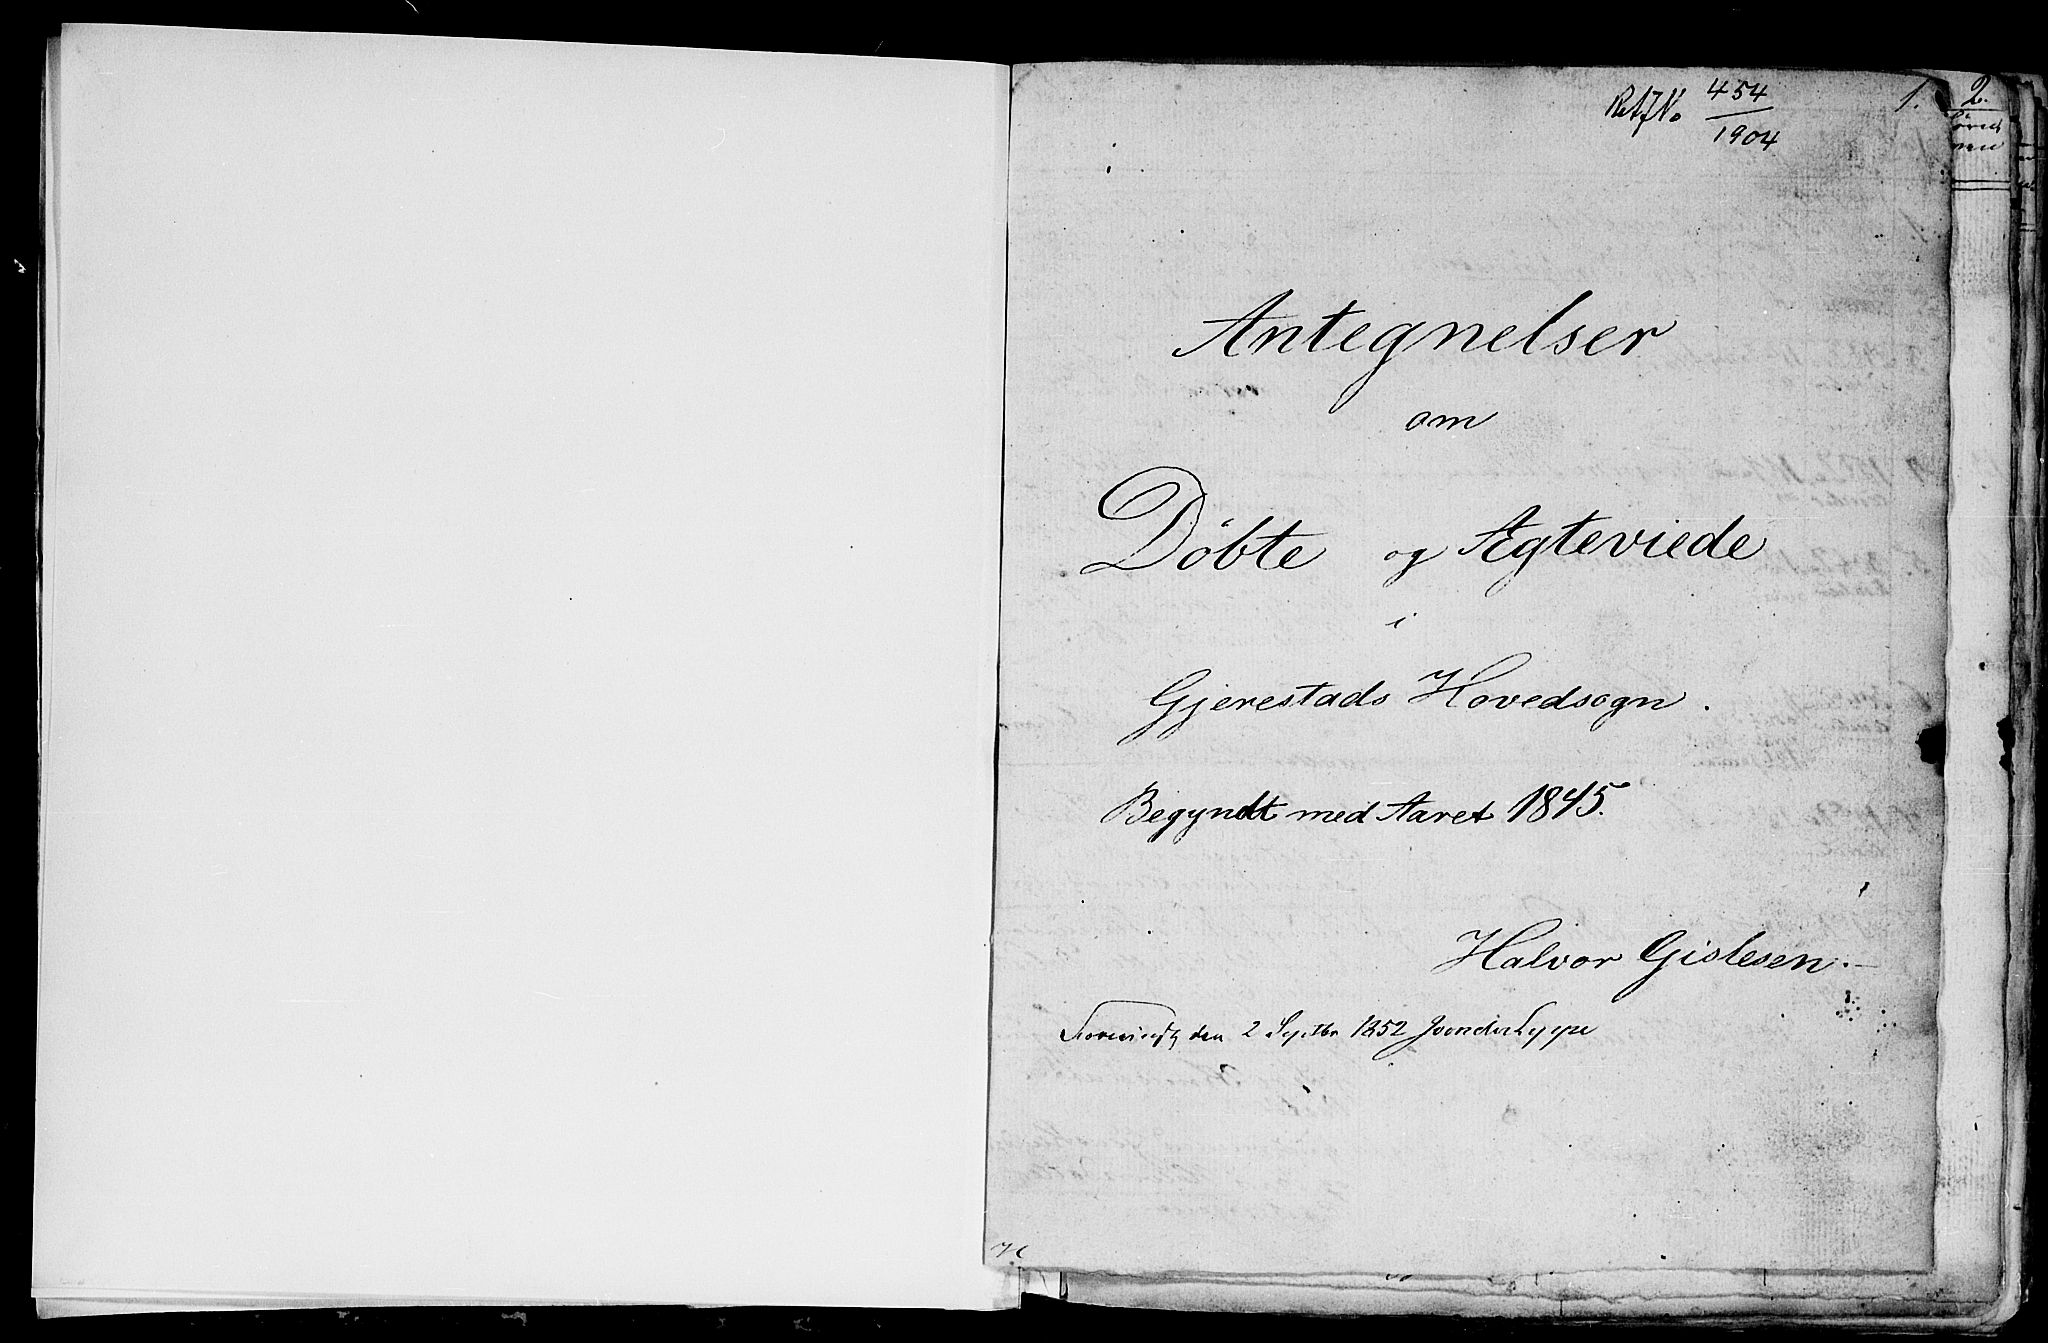 454
1904
1.
2.
Antegnelser
om
Døbte og Ægteviede
i
Gjerestads Hovedsogn.
Begyndt med Aaret 1845.
Halvor Gislesen.
Foreviist den 2 Septbr 1852 JvonderLippe